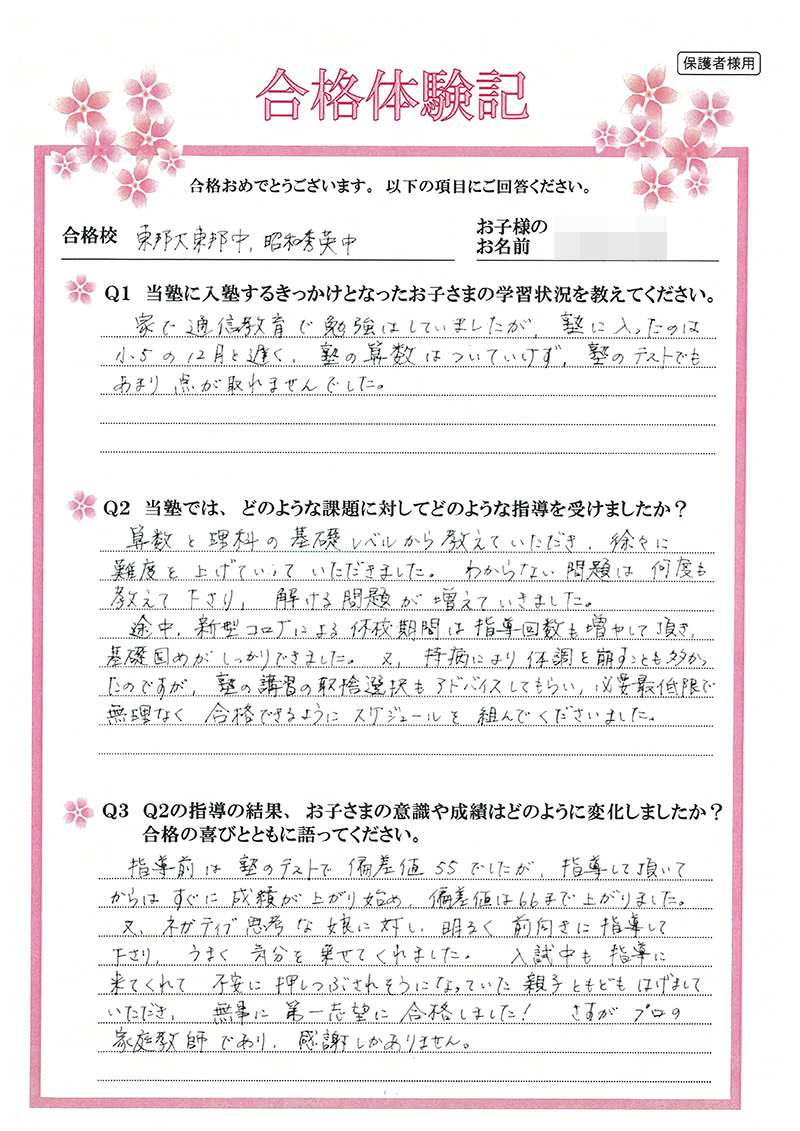 保護者様用
合格体験記
合格おめでとうございます。以下の項目にご回答ください。
合格校 東邦大東邦中, 昭和秀英中
お子様の
お名前
Q1 当塾に入塾するきっかけとなったお子さまの学習状況を教えてください。
家で通信教育で勉強はしていましたが、塾に入ったのは
小5の12月と遅く、塾の算数はついていけず、塾のテストでも
あまり点が取れませんでした。
Q2 当塾では、どのような課題に対してどのような指導を受けましたか？
算数と理科の基礎レベルから教えていただき、徐々に
難度を上げていっていただきました。わからない問題は何度も
教えて下さり、解ける問題が増えていきました。
途中、新型コロナによる休校期間は指導回数も増やして頂き、
基礎固めがしっかりできました。又、持病により体調を崩すことも多か
ったのですが、塾の講習の取捨選択もアドバイスしてもらい、必要最低限で
無理なく合格できるようにスケジュールを組んでくださいました。
Q3 Q2の指導の結果、お子さまの意識や成績はどのように変化しましたか？
合格の喜びとともに語ってください。
指導前は塾のテストで偏差値55でしたが、指導して頂いて
からはすぐに成績が上がり始め、偏差値は66まで上がりました。
又、ネガティブ思考な娘に対し、明るく前向きに指導して
下さり、うまく気分を乗せてくれました。入試中も指導に
来てくれて不安に押しつぶされそうになっていた親子ともどもはげまして
いただき、無事に第一志望に合格しました！さすがプロの
家庭教師であり、感謝しかありません。